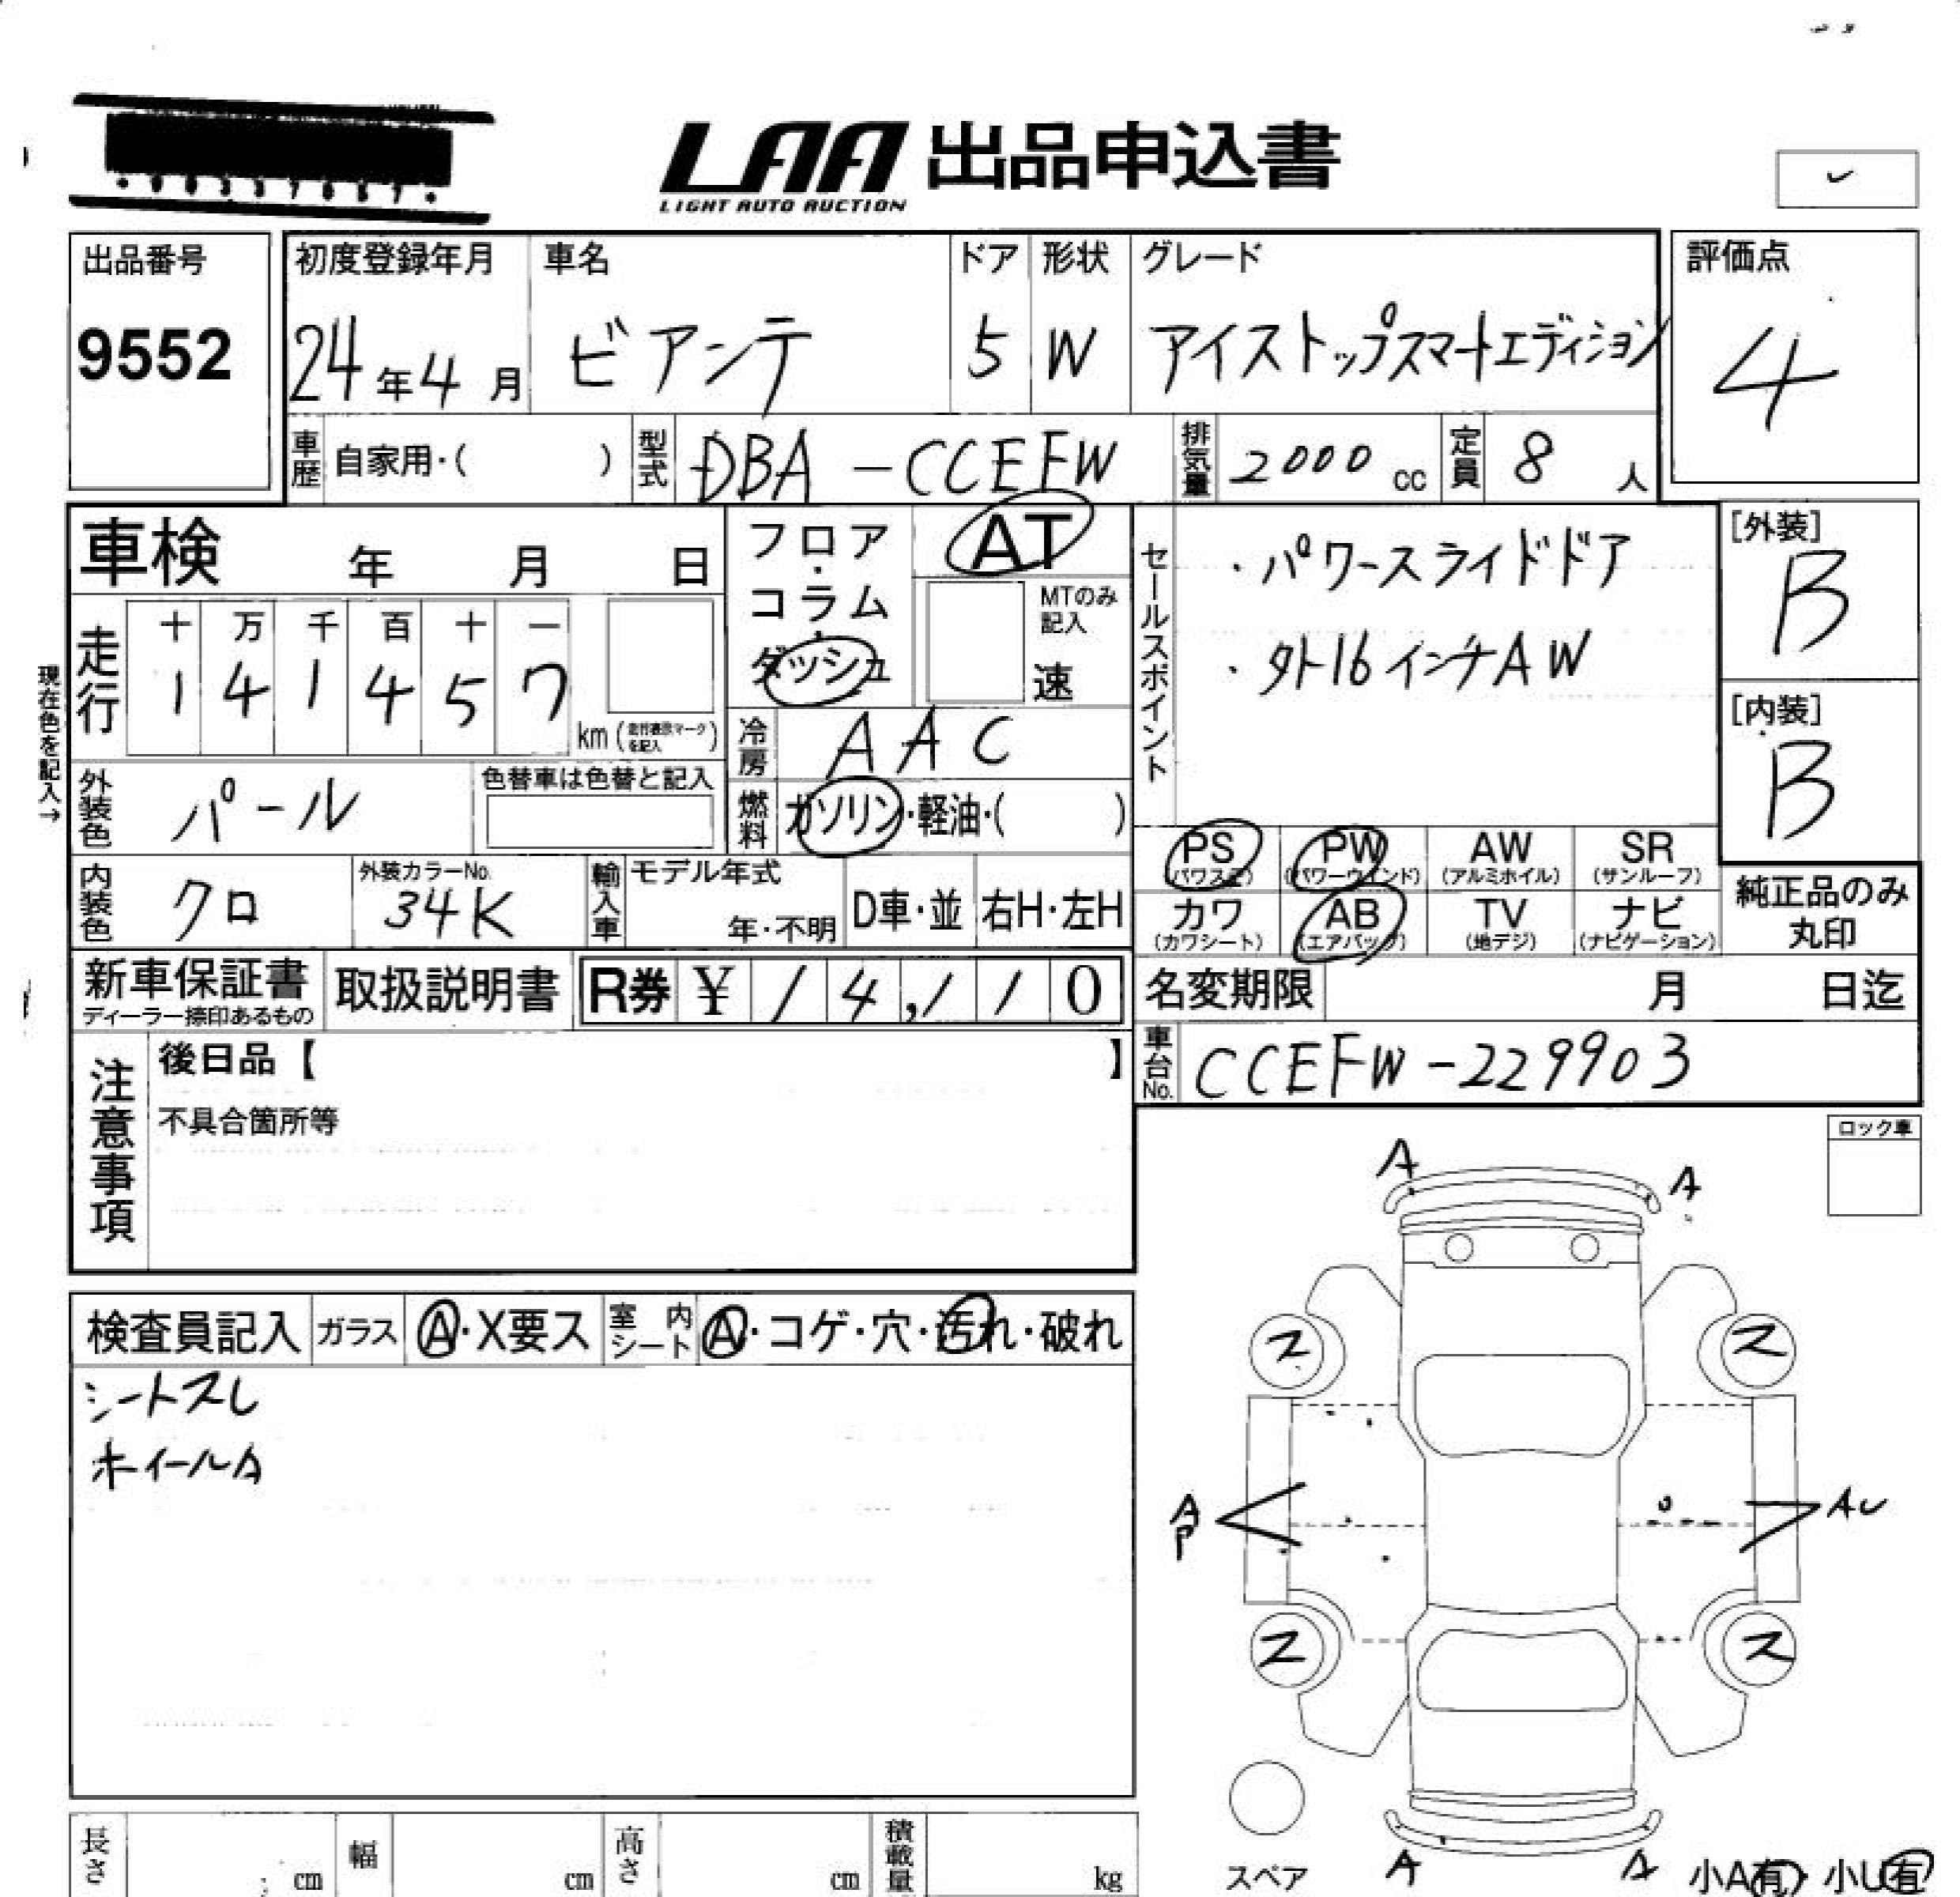 LAA 出品申込書
LIGHT AUTO AUCTION
出品番号 初度登録年月 車名 ドア 形状 グレード 評価点
9552 24年4月 ビアンテ 5 W アイストップスマートエディション 4
車歴 自家用・( ) 型式 DBA-CCEFW 排気量 2000 cc 定員 8 人
車検 年 月 日
フロア・コラム・ダッシュ AT
MTのみ記入 速
セールスポイント
・パワースライドドア
・外16インチAW
[外装] B
[内装] B
現在色を記入→
走行 十 万 千 百 十 一
1 4 1 4 5 7 km (走行表示マークを記入)
冷房 AAC
外装色 パール 色替車は色替と記入
燃料 ガソリン・軽油・( )
PS (パワステ) PW (パワーウインド) AW (アルミホイル) SR (サンルーフ)
カワ (カワシート) AB (エアバッグ) TV (地デジ) ナビ (ナビゲーション)
純正品のみ丸印
内装色 クロ 外装カラーNo. 34K 輸入車 モデル年式 年・不明 D車・並 右H・左H
新車保証書 ディーラー捺印あるもの 取扱説明書 R券 ¥ 14,110
名変期限 月 日迄
車台No. CCEFW-229903
注意事項
後日品【 】
不具合箇所等
ロック車
検査員記入 ガラス A・X要ス 室内シート A・コゲ・穴・汚れ・破れ
シートスレ
ホイールA
A A
ス ス
A P AU
ス ス
A A
スペア 小A有・小U有
長さ cm 幅 cm 高さ cm 積載量 kg